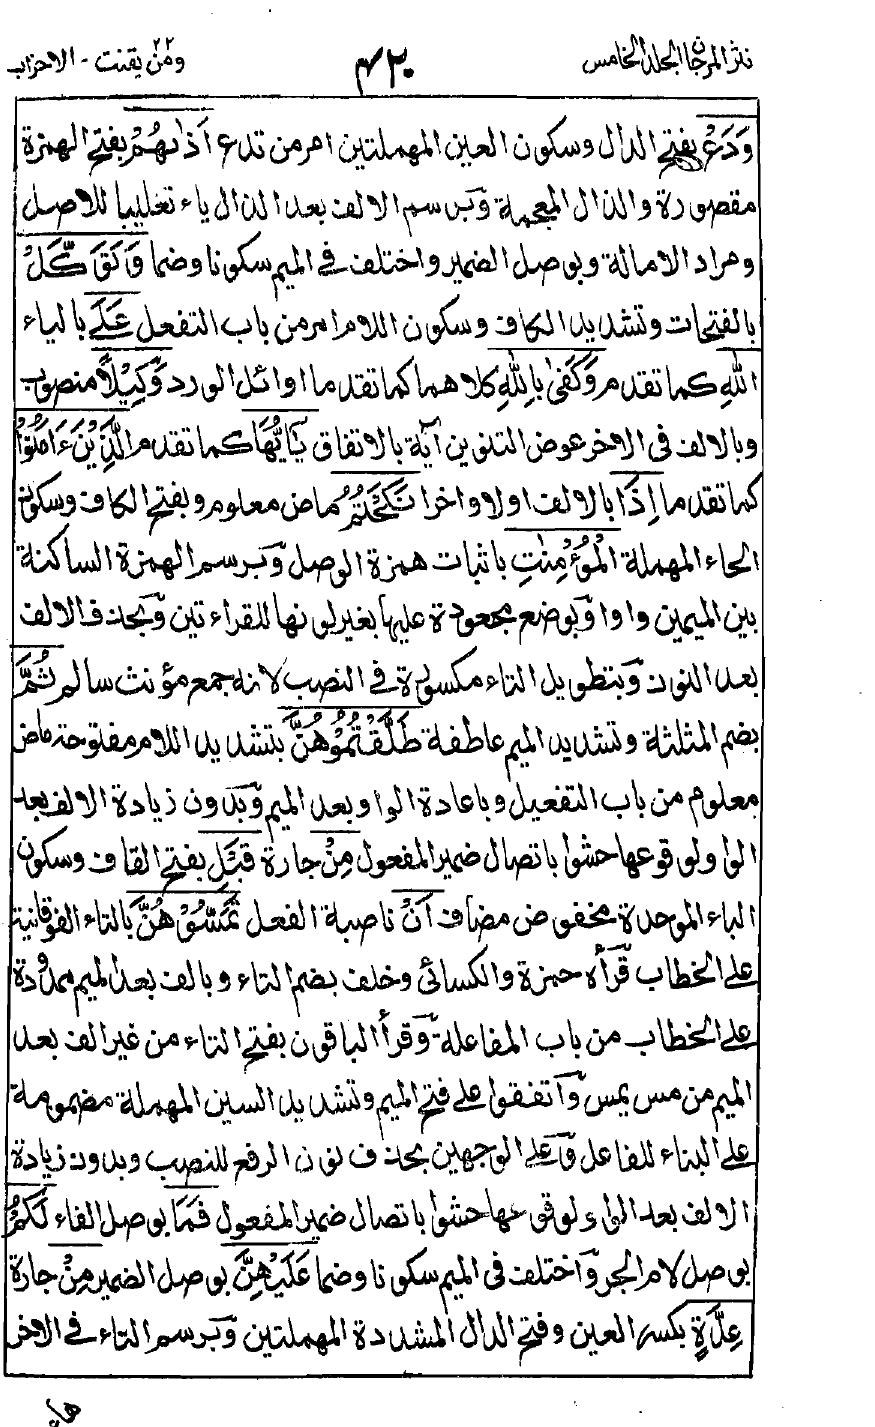 نثر المرجان الجلد الخامس
٤٣٠
ومن يقنت ٢٢ - الاحزاب
وَدَعْ بفتح الدال وسكون العين المهملتين امر من تدع اَذٰىهُمْ بفتح الهمزة
مقصورة والذال المعجمة وَبرسم الالف بعد الذال ياء تغليبا للاصل
ومراد الامالة وبوصل الضمير واختلف فى الميم سكونا وضما وَتَوَكَّلْ
بالفتحات وتشديد الكاف وسكون اللام امر من باب التفعل عَلَى بالياء
اللّٰهِ كما تقدم وَكَفٰى بِاللّٰهِ كلاهما كما تقدما اوائل الورد وَكِيْلًا منصوب
وبالالف فى الاخر عوض التنوين آية بالاتفاق يٰٓاَيُّهَا كما تقدم الَّذِيْنَ ءَامَنُوْٓا
كما تقدما اِذَا بالالف اولا واخرا نَكَحْتُمُ ماض معلوم وبفتح الكاف وسكون
الحاء المهملة الْمُؤْمِنٰتِ باثبات همزة الوصل وَبرسم الهمزة الساكنة
بين الميمين واوا وَبوضع مجعودة عليها بغير لونها للقراءتين وَبحذف الالف
بعد النون وَبتطويل التاء مكسورة فى النصب لانه جمع مؤنث سالم ثُمَّ
بضم المثلثة وتشديد الميم عاطفة طَلَّقْتُمُوْهُنَّ بتشديد اللام مفتوحة ماض
معلوم من باب التفعيل وباعادة الواو بعد الميم وَبدون زيادة الالف بعد
الواو لوقوعها حشوا باتصال ضمير المفعول مِنْ جارة قَبْلِ بفتح القاف وسكون
الباء الموحدة مخفوض مضاف اَنْ ناصبة الفعل تَمَسُّوْهُنَّ بالتاء الفوقانية
على الخطاب قَرأه حمزة والكسائى وخلف بضم التاء وبالف بعد الميم ممدودة
على الخطاب من باب المفاعلة وَقرأ الباقون بفتح التاء من غير الف بعد
الميم من مس يمس وَاتفقوا على فتح الميم وتشديد السين المهملة مضمومة
على البناء للفاعل وَعلى الوجهين بحذف نون الرفع للنصب وبدون زيادة
الالف بعد الواو لوقوعها حشوا باتصال ضمير المفعول فَمَا بوصل الفاء لَكُمْ
بوصل لام الجر وَاختلف فى الميم سكونا وضما عَلَيْهِنَّ بوصل الضمير مِنْ جارة
عِدَّةٍ بكسر العين وفتح الدال المشددة المهملتين وَبرسم التاء فى الاخر
هاء